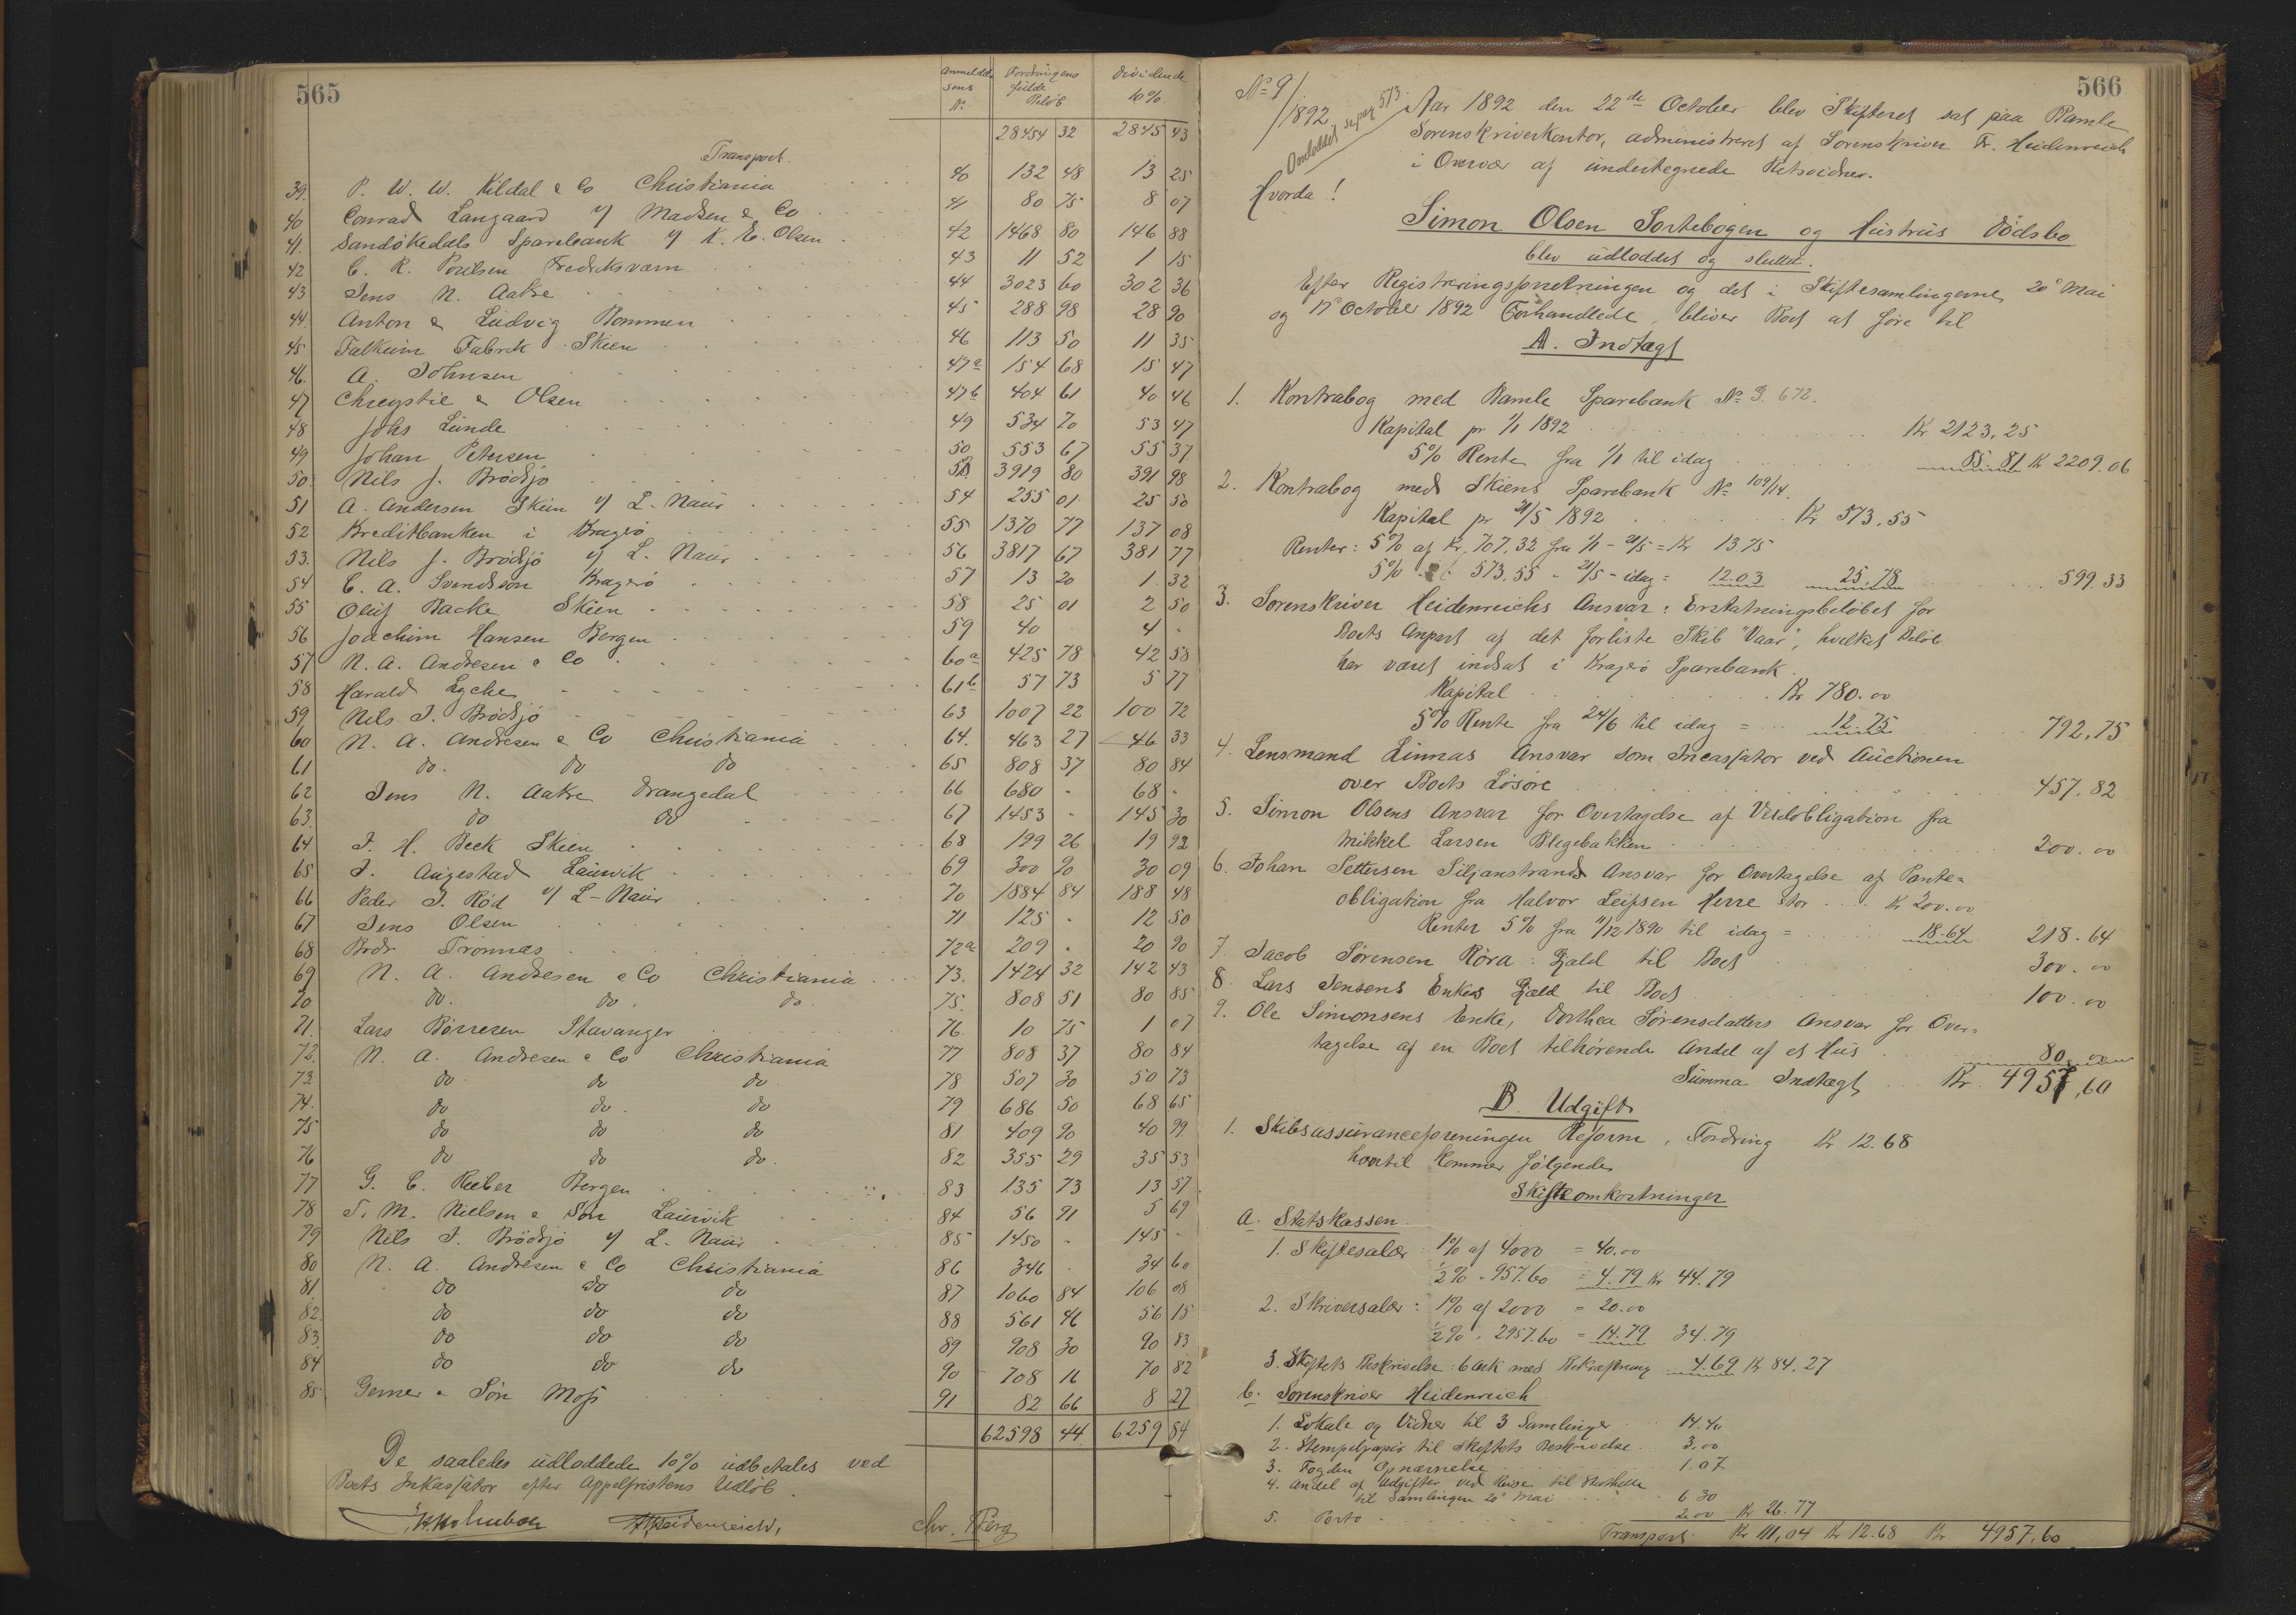 565
Anmeldelsens No. Fordringens fulde Beløb Dividende 10%
Transport. 28454 32 2845 43
39. P. W. W. Kildal & Co Christiania 40 132 48 13 25
40 Conrad Langaard v/ Madsen & Co 41 80 75 8 07
41. Sandökedals Sparebank v/ K. E. Olsen 42 1468 80 146 88
42 C. R. Poulsen Fredriksværn 43 11 52 1 15
43 Jens N. Aakre 44 3023 60 302 36
44. Anton & Ludvig Bommen 45 288 98 28 90
45 Falkum Fabrik Skien 46 113 50 11 35
46. A. Johnsen 47a 154 68 15 47
47 Chrystie & Olsen 47b 404 61 40 46
48 Johs Lunde 49 534 70 53 47
49 Johan Petersen 50 553 67 55 37
50. Nils J. Brödsjö 3919 80 391 98
51 A. Andersen Skien v/ L. Naur 54 255 01 25 50
52 Kreditbanken i Kragerö 55 1370 77 137 08
53. Nils J. Brödsjö v/ L. Naur 56 3817 67 381 77
54 C. A. Svendsen Kragerö 57 13 20 1 32
55 Oluf Backe Skien 58 25 01 2 50
56 Joachim Hansen Bergen 59 40 4 -
57 N. A. Andresen & Co 60a 425 78 42 58
58 Harald Lyche 61b 57 73 5 77
59. Nils J. Brödsjö 63 1007 22 100 72
60 N. A. Andresen & Co Christiania 64. 463 27 46 33
61 do. do do 65 808 37 80 84
62 Jens N. Aakre Drangedal 66 680 - 68 -
63. do do 67 1453 - 145 30
64 J. H. Beck Skien 68 199 26 19 92
65 J. Augestad Laurvik 69 300 90 30 09
66 Peder J. Röd v/ L. Naur 70 1884 84 188 48
67 Jens Olsen 71 125 - 12 50
68 Brdr Tronnæs 72a 209 - 20 90
69 N. A. Andresen & Co Christiania 73. 1424 32 142 43
70 do. do. do. 75. 808 51 80 85
71. Lars Börresen Stavanger 76. 10 75 1 07
72. N. A. Andresen & Co Christiania 77 808 37 80 84
73. do do do. 78 507 30 50 73
74. do do. do 79 686 50 68 65
75 do do do 81 409 90 40 99
76 do do do. 82 355 29 35 53
77 G. C. Rieber Bergen 83 135 73 13 57
78 S. M. Nielsen & Sön Laurvik 84 56 91 5 69
79 Nils J. Brödsjö v/ L. Naur 85 1450 - 145 -
80 N. A. Andresen & Co Christiania 86 346 - 34 60
81. do do do 87 1060 84 106 08
82. do do do 88 561 46 56 15
83. do do do 89 908 30 90 83
84 do do do 90 708 16 70 82
85. Gerner & Sön Moss 91 82 66 8 27
62598 44 6259 84
De saaledes udloddede 10% udbetales ved
Boets Inkassator efter Appelfristens Udløb.
Heidenreich, Chr. Berg
566
No 9/1892
Udloddet se pag 573.
Aar 1892 den 22de October blev Skifteret sat paa Bamle
Sorenskriverkontor, administreret af Sorenskriver Fr. Heidenreich
i Overvær af undertegnede Retsvidner.
Hvorda!
Simon Olsen Sortebogen og Hustrus Dödsbo
blev udloddet og sluttet.
Efter Registreringsforretningen og det i Skiftesamlingerne 20de Mai
og 17de October 1892 Forhandlede, bliver Boet at före til
A. Indtægt
1. Kontrabog med Bamle Sparebank No 3.672.
Kapital pr 1/1 1892 Kr 2123,25
5% Rente fra 1/1 til idag 85.81 Kr 2209.06
2. Kontrabog med Skiens Sparebank No 109/14.
Kapital pr 21/5 1892 Kr 573,55
Renter: 5% af Kr. 707,32 fra 1/1 - 21/5 = Kr 13.75
5% 573,55 " 21/5 - idag = 12.03 25.78 599.33
3. Sorenskriver Heidenreichs Ansvar: Erstatningsbelöbet for
Boets Anpart af det forliste Skib "Vaar", hvilket Belöb
har været indsat i Kragerö Sparebank.
Kapital Kr 780.00
5% Rente fra 24/6 til idag = 12.75 792,75
4. Lensmand Linnæs Ansvar som Incassator ved Auctionen
over Boets Lösöre 457.82
5. Simon Olsens Ansvar for Overtagelse af Vexelobligation fra
Mikkel Larsen Blegebakken 200.00
6. Johan Settersen Siljanstrands Ansvar for Overtagelse af Pante=
obligation fra Halvor Leifsen Herre stor Kr 200.00
Renter 5% fra 11/12 1890 til idag = 18.64 218.64
7. Jacob Sørensen Röra: Gjæld til Boet 300.00
8 Lars Jensens Enkes Gjæld til Boet 100.00
9. Ole Simonsens Enke, Dorthea Sørensdatters Ansvar for Over=
tagelse af en Boet tilhörende Andel af et Hus 80.00
Summa Indtægt Kr. 4957,60
B. Udgift
1. Skibsassuranceforeningen Reform, Fordring Kr 12.68
hvortil kommer følgende
Skifteomkostninger
a. Statskassen.
1. Skiftesalær 1% af 4000 = 40.00
1/2% " 957.60 = 4.79 Kr 44.79
2. Skriversalær: 1% af 2000 = 20.00
1/2% " 2957.60 = 14.79 34.79
3. Skiftets Beskrivelse: 6 ark med Bekræftning 4.69 Kr 84.27
b. Sorenskriver Heidenreich
1. Lokale og Vidner til 3 Samlinger 14.40
2. Stempelpapir til Skiftets Beskrivelse. 3.00
3. Fogden Opnævnelse 1.07
4. Andel af Udgifter ved Reise til
til Samlingen 20de Mai 6 30
5. Porto 2.00 Kr 26.77
Transport Kr 111,04 Kr 12.68 Kr 4957.60